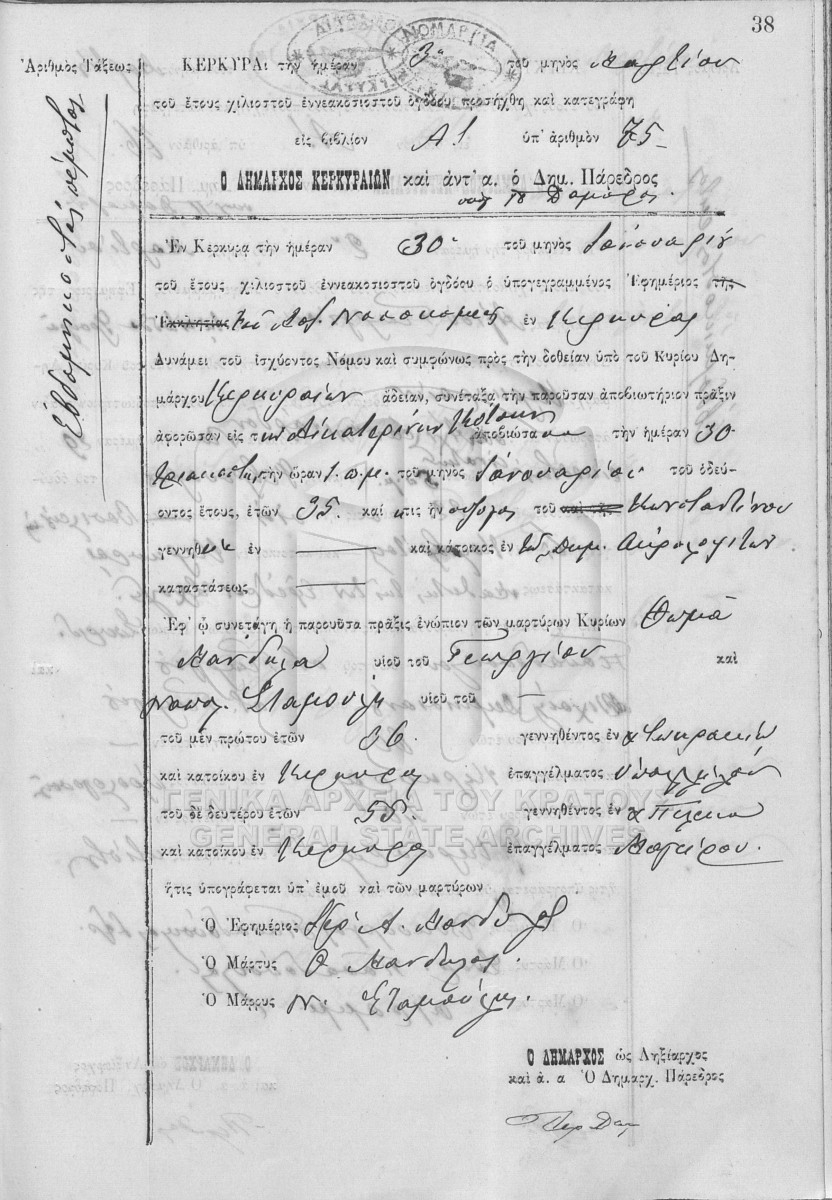 38
ΔΙΤΥΠΟΝ
ΝΟΜΑΡΧΙΑ
ΚΕΡΚΥΡΑΣ
Ἀριθμὸς Τάξεως
Ἑβδομηκοστὸς πέμπτος
ΚΕΡΚΥΡΑι τὴν ἡμέραν 3η τοῦ μηνὸς Μαρτίου
τοῦ ἔτους χιλιοστοῦ ἐννεακοσιοστοῦ ὀγδόου προσήχθη καὶ κατεγράφη
εἰς βιβλίον Α1 ὑπ' ἀριθμὸν 75
Ο ΔΗΜΑΡΧΟΣ ΚΕΡΚΥΡΑΙΩΝ καὶ ἀντ' α. ὁ Δημ. Πάρεδρος
Ἐν Κερκύρᾳ τὴν ἡμέραν 30 τοῦ μηνὸς Ἰανουαρίου
τοῦ ἔτους χιλιοστοῦ ἐννεακοσιοστοῦ ὀγδόου ὁ ὑπογεγραμμένος Ἐφημέριος τῆς
Ἐκκλησίας τοῦ Νοσοκομείου ἐν Κερκύρᾳ
Δυνάμει τοῦ ἰσχύοντος Νόμου καὶ συμφώνως πρὸς τὴν δοθεῖαν ὑπὸ τοῦ Κυρίου Δη-
μάρχου Κερκυραίων ἄδειαν, συνέταξα τὴν παροῦσαν ἀποβιωτήριον πρᾶξιν
ἀφορῶσαν εἰς τὴν Αἰκατερίνην ἀποβιώσασαν τὴν ἡμέραν 30
τριακοστὴν τὴν ὥραν 1. π.μ. τοῦ μηνὸς Ἰανουαρίου τοῦ ὁδεύ-
οντος ἔτους, ἐτῶν 35. καὶ ἥτις ἦν σύζυγος τοῦ καὶ τῆς Κωνσταντίνου
γεννηθ ἐν — καὶ κάτοικος ἐν
καταστάσεως —
Ἐφ' ᾧ συνετάγη ἡ παροῦσα πρᾶξις ἐνώπιον τῶν μαρτύρων Κυρίων Θωμᾶ
Μάνδηλα υἱοῦ τοῦ Γεωργίου καὶ
Σταμούλη υἱοῦ τοῦ —
τοῦ μὲν πρώτου ἐτῶν 36. γεννηθέντος ἐν
καὶ κατοίκου ἐν Κερκύρᾳ ἐπαγγέλματος ὑπαλλήλου
τοῦ δὲ δευτέρου ἐτῶν 55. γεννηθέντος ἐν
καὶ κατοίκου ἐν Κερκύρᾳ ἐπαγγέλματος Μαγείρου.
ΓΕΝΙΚΑ ΑΡΧΕΙΑ ΤΟΥ ΚΡΑΤΟΥΣ
GENERAL STATE ARCHIVES
ἥτις ὑπογράφεται ὑπ' ἐμοῦ καὶ τῶν μαρτύρων
Ὁ Ἐφημέριος
Ὁ Μάρτυς Θ Μάνδηλας.
Ὁ Μάρρυς Ν. Σταμούλης
Ο ΔΗΜΑΡΧΟΣ ὡς Ληξίαρχος
καὶ ἀ. α Ὁ Δημαρχ. Πάρεδρος